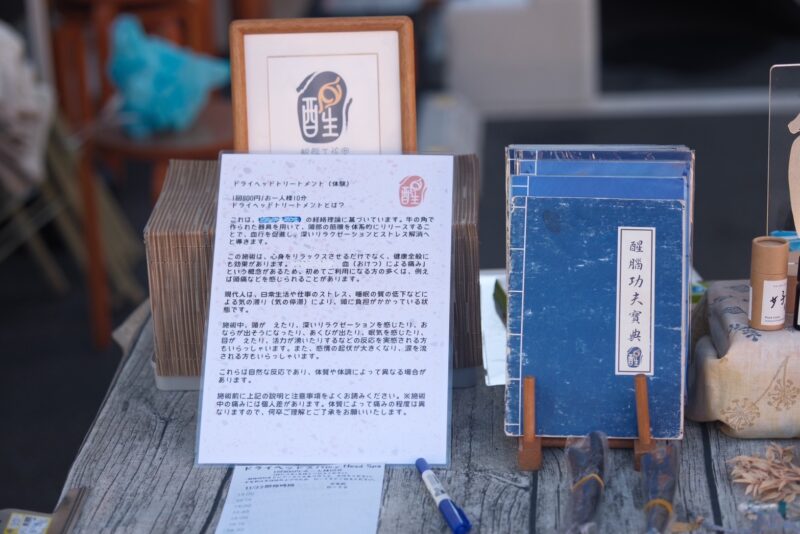 醒
ドライヘッドトリートメント（体験）
1回800円/お一人様10分
ドライヘッドトリートメントとは？
これは、 の経絡理論に基づいています。牛の角で
作られた器具を用いて、頭部の筋膜を体系的にリリースするこ
とで、血行を促進し、深いリラクゼーションとストレス解消へ
と導きます。
この施術は、心身をリラックスさせるだけでなく、健康全般に
も効果があります。 血（おけつ）による痛み」
という概念があるため、初めてご利用になる方の多くは、例え
ば頭痛などを感じられることがあります。
現代人は、日常生活や仕事のストレス、睡眠の質の低下などに
よる気の滞り（気の停滞）により、頭に負担がかかっている状
態です。
施術中、頭が えたり、深いリラクゼーションを感じたり、お
ならが出そうになったり、あくびが出たり、眠気を感じたり、
目が えたり、活力が湧いたりするなどの反応を実感される方
もいらっしゃいます。また、感情の起伏が大きくなり、涙を流
される方もいらっしゃいます。
これらは自然な反応であり、体質や体調によって異なる場合が
あります。
施術前に上記の説明と注意事項をよくお読みください。※施術
中の痛みには個人差があります。体質によって痛みの程度は異
なりますので、何卒ご理解とご了承をお願いいたします。
醒
醒腦功夫寶典
ドライヘッドスパ Dry Head Spa